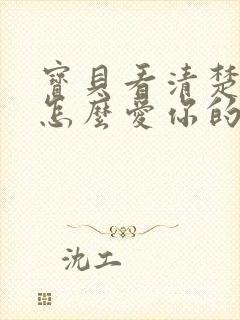 寶貝看清楚
怎麼愛你的
沈工